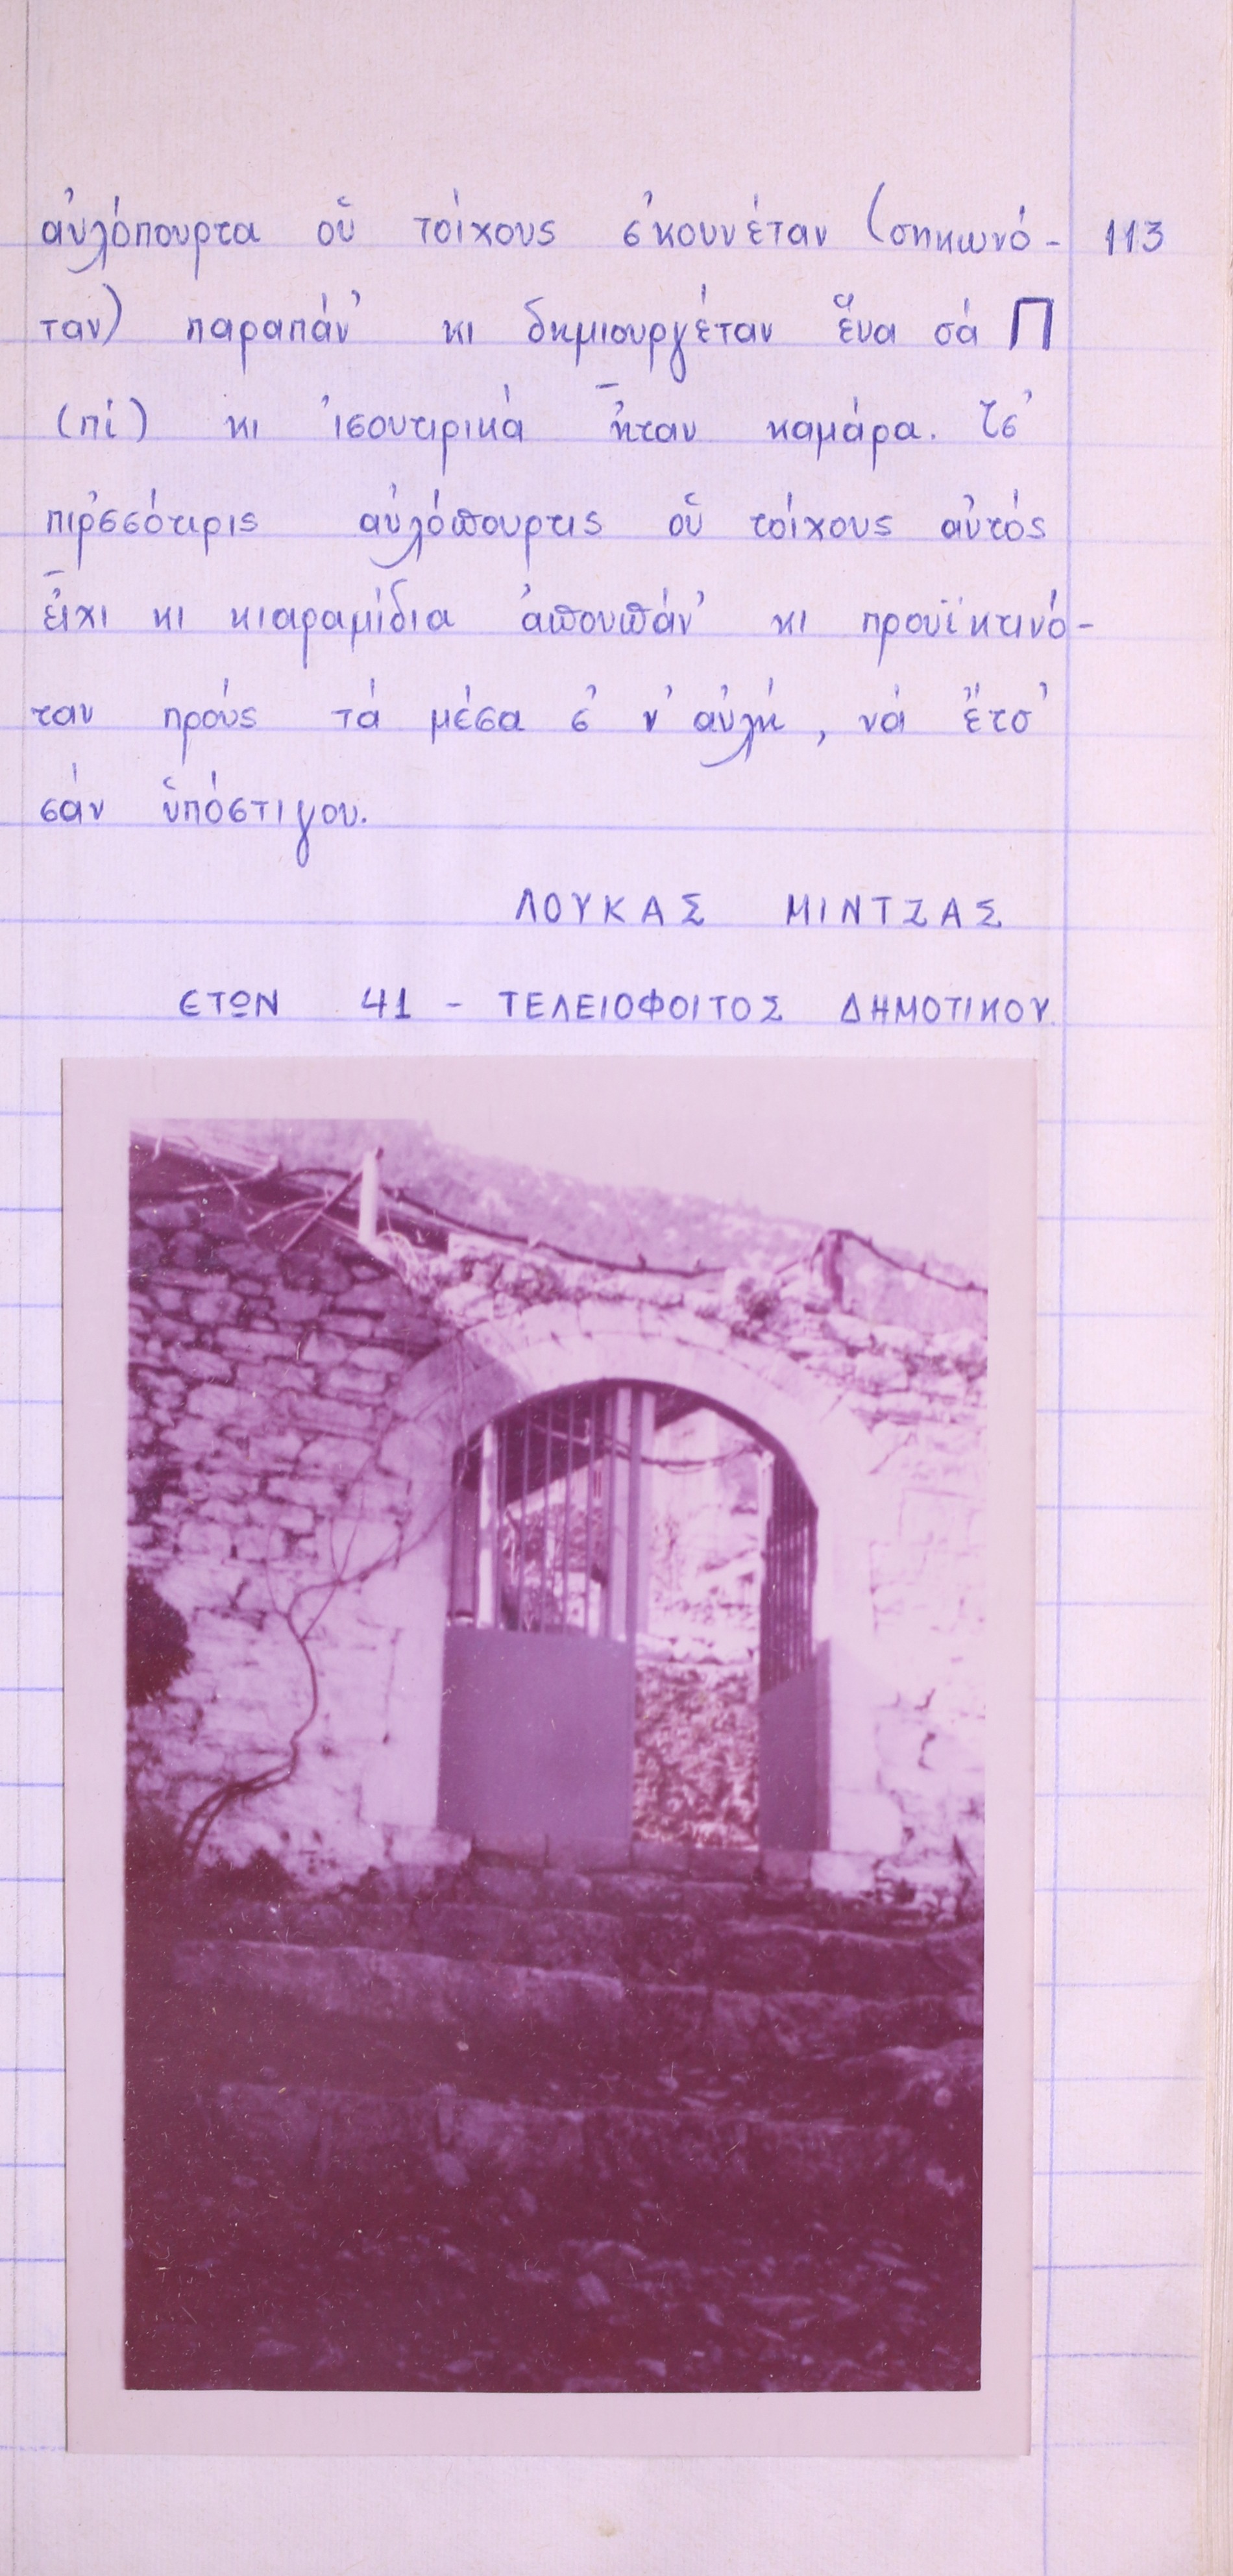 αὐλόπουρτα οὑ τοίχους σ'κουνέταν (σηκωνό- 113
ταν) παραπάν' κι δημιουργέταν ἕνα σά Π
(πί) κι 'ισουτιρικά ἦταν καμάρα. Τσ'
πιρ'σσότιρις αὐλόπουρτις οὑ τοίχους αὐτός
εἶχι κι κιαραμίδια ἀπουπάν' κι προυϊκτινό-
ταν πρόυς τά μέσα σ' ν' αὐλή, νά ἔτσ'
σάν ὑπόστιγου.
ΛΟΥΚΑΣ ΜΙΝΤΖΑΣ
ΕΤΩΝ 41 - ΤΕΛΕΙΟΦΟΙΤΟΣ ΔΗΜΟΤΙΚΟΥ.